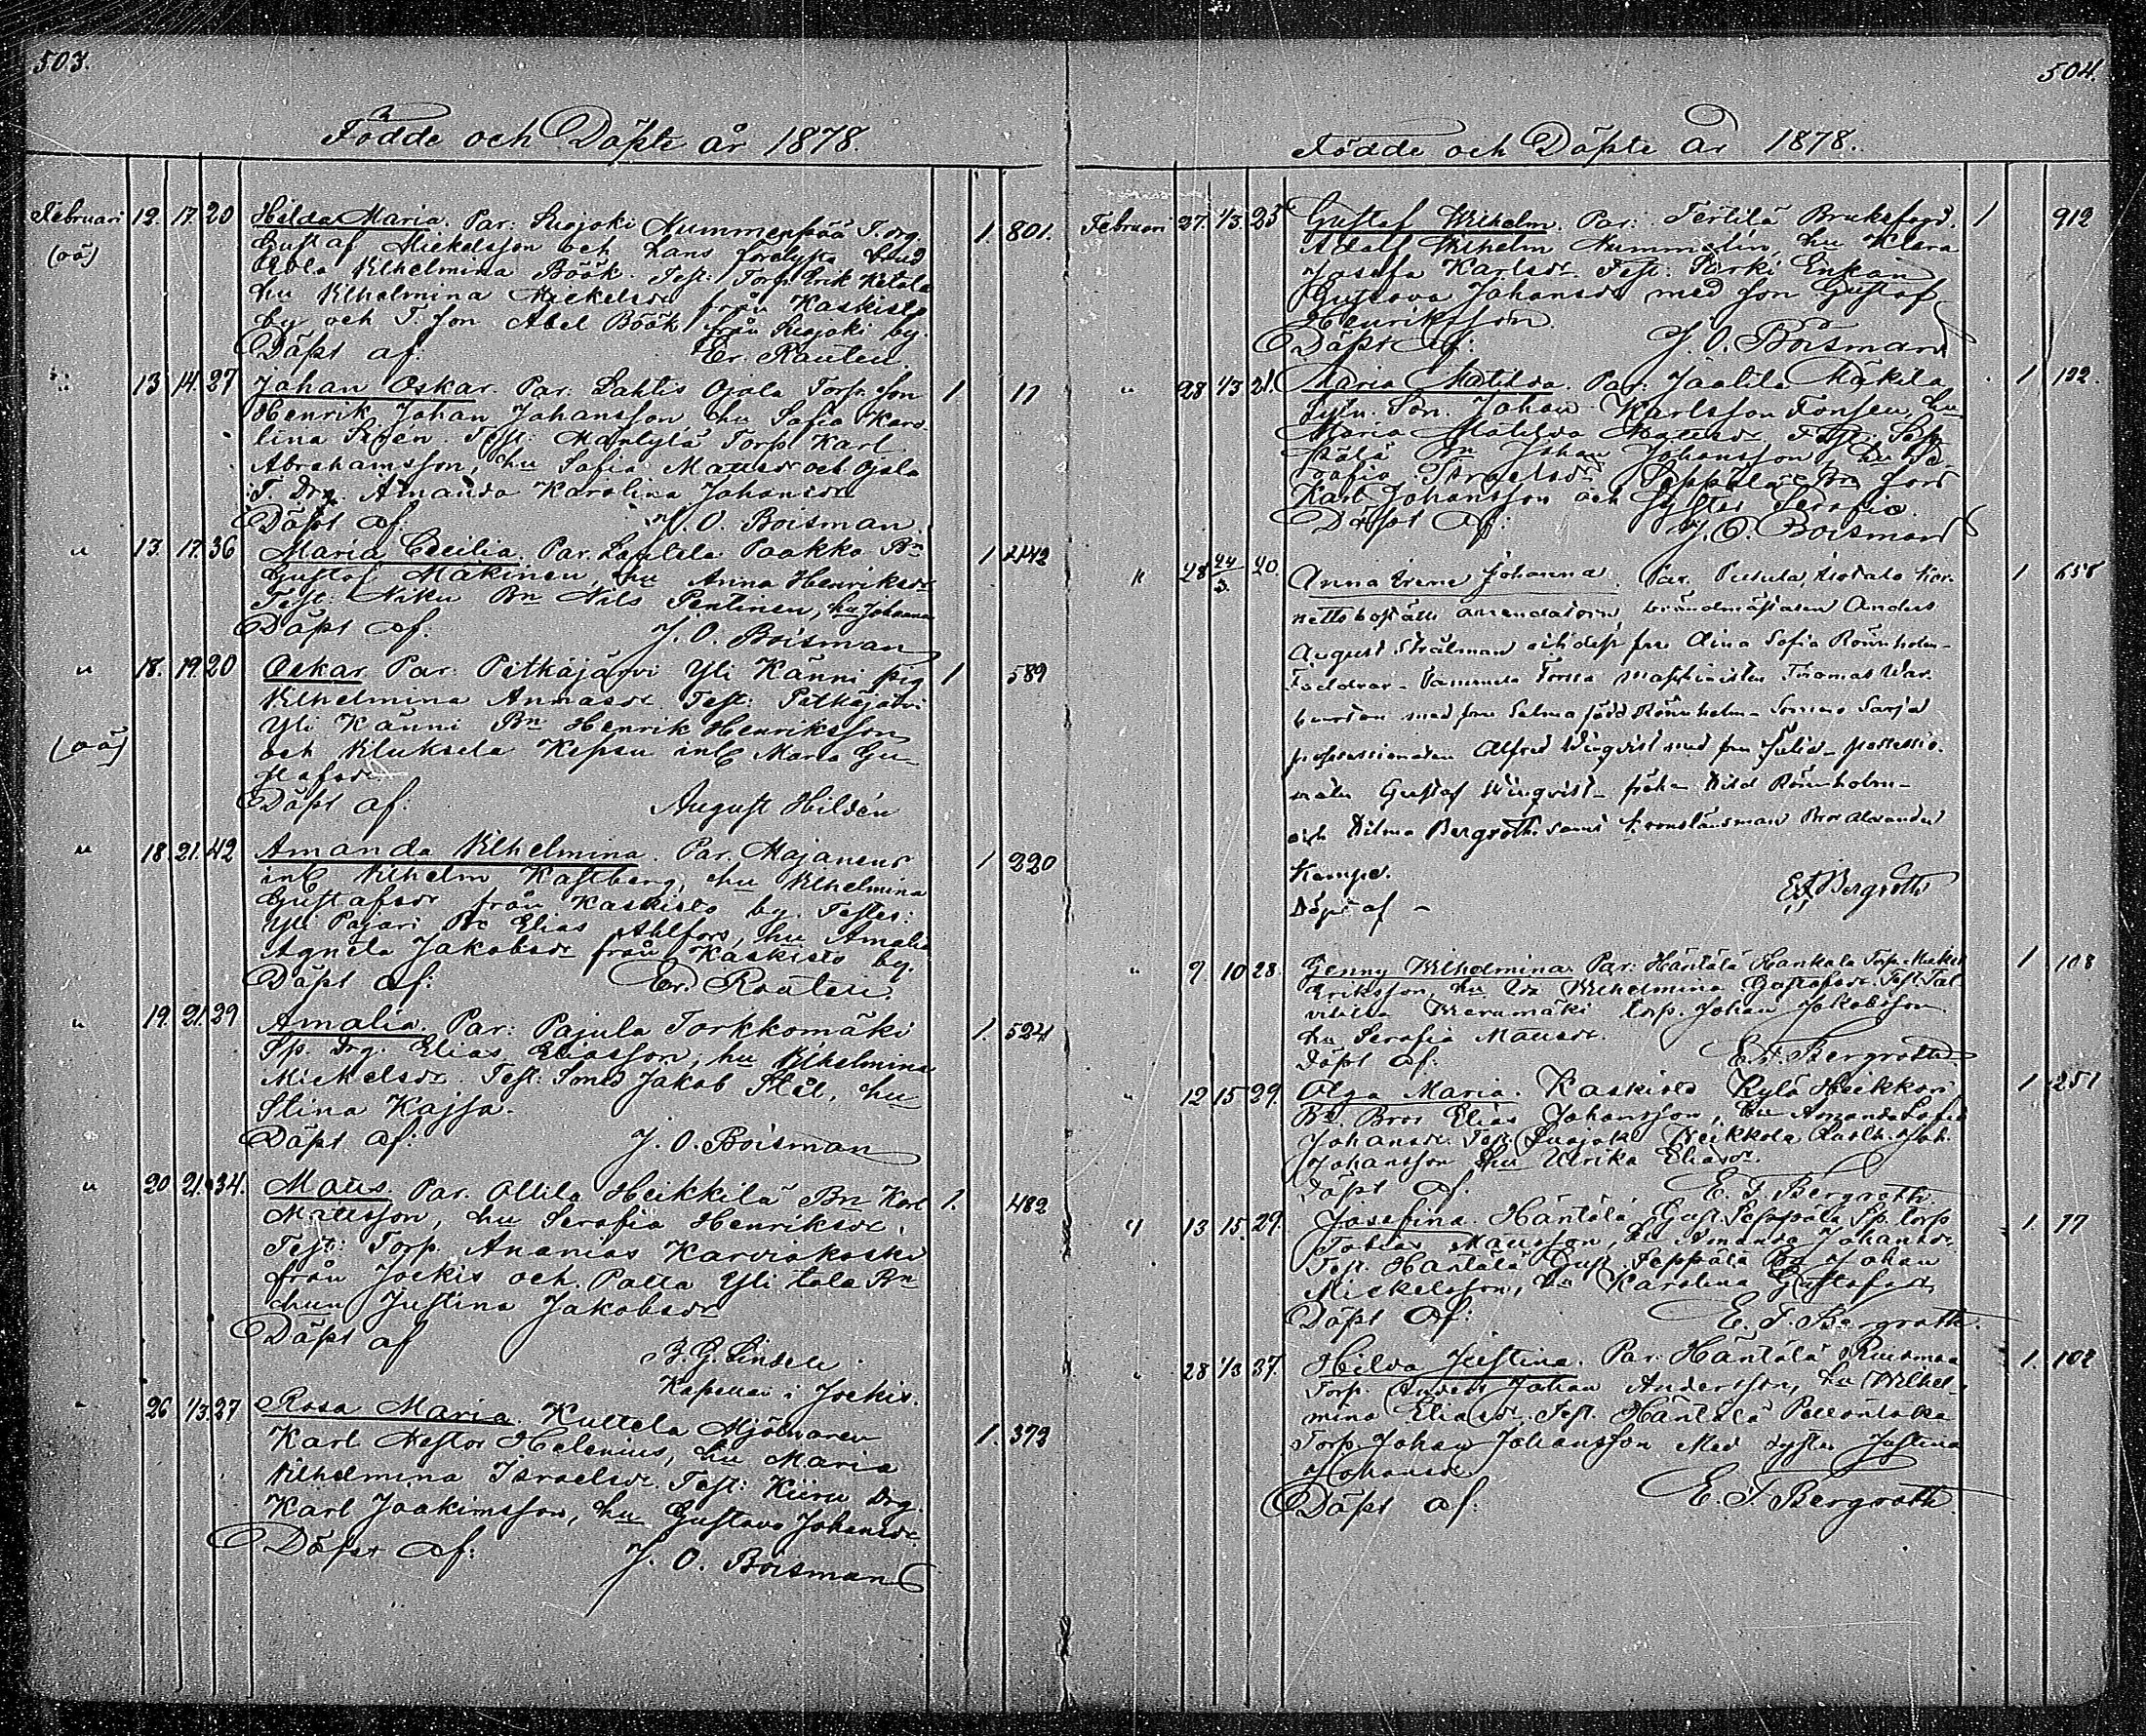 503.
Födde och Döpte år 1878.
Februari 12. 17. 20 Hilda Maria. Par: Suojoki Nummenpää T. drg. 1. 801.
(oä) Gustaf Mickelsson och hans förlofvade
Wilhelmina Böök. Test: Torp. Erik Ketola
hu Wilhelmina Mickelsdr från Kaskisto
by och T. son Abel Böök från Suojoki by.
Döpt af: Er. Rauteli.
" 13. 14. 27 Johan Oskar. Par. Lahtis Ojala Torp. Son 1 17
Henrik Johan Johansson, hu Sofia Karo-
lina Sirén. Test: Mäntylä Torp. Karl
Abrahamsson, hu Sofia Mattsdr och Ojala
T. Drg. Amanda Karolina Johansdr
Döpt af: J. O. Boisman.
" 13. 17. 36 Maria Cecilia. Par. Lautela Paakko Bn 1 442
Gustaf Mäkinen, hu Anna Henriksdr
Test: Niku Bn Nils Penlinen, hu Johanna
Döpt af: J. O. Boisman
" 18. 19. 20 Oskar. Par: Pitkäjärvi Yli Känni pig. 1 589
Wilhelmina Annasdr. Test: Pitkäjärvi
Yli Känni Bn Henrik Henriksson
(oä) och Kluksela Kepsu inh. Maria Gu-
stafsdr
Döpt af: August Hildén
" 18. 21. 42 Amanda Wilhelmina. Par. Majanens 1 220
inh. Wilhelm Kastberg, hu Wilhelmina
Gustafsdr från Kaskisto by. Testes:
Yli Pajari Bn Elias Ahlfors, hu Amalia
Agneta Jakobsdr från Kaskisto by.
Döpt af: Er. Rauteli.
" 19. 21. 29 Amalia. Par: Pajula Torkkomäki 1. 524
Sp. Drg. Elias Eliasson, hu Wilhelmina
Mickelsdr. Test: Smed Jakob Stål, hu
Stina Kajsa.
Döpt af: J. O. Boisman
" 20. 21. 34. Matts. Par. Ollila Heikkilä Bn Karl 1. 482
Mattsson, hu Serafia Henriksdr.
Test: Torp. Ananias Karviakoski
från Jockis och Palta Yli tala Bn
hun Justina Jakobsdr
Döpt af B. G. Lindell
Kapellan i Jockis.
" 26 1/3. 27 Rosa Maria. Kultela Mjölnaren 1. 372
Karl Nestor Helenius, hu Maria
Wilhelmina Israelsdr. Test: Kiiru Drg.
Karl Joakimsson, hu Gustava Johansdr
Döpt af: J. O. Boisman
504.
Födde och Döpte år 1878.
Februari 27. 1/3. 25 Gustaf Wilhelm. Par: Terttilä Bruksfogd. 1 912
Adolf Wilhelm Nummelin, hu Klara
Josefa Karlsdr. Test: Pärki Enkan
Gustava Johansdr med son Gustaf
Henriksson.
Döpt af: J. O. Boisman
" 28 1/3 21. Maria Matilda. Par: Jaatila Mäkilä 1 122.
Sytn. Son. Johan Karlsson Tonsen, hu
Maria Matilda Mattsdr. Test: Sep-
pälä Bn Johan Johansson, hu Se-
rafia Israelsdr Seppälä Bn fors
Karl Johansson och Syster Serafia.
Döpt af: J. O. Boisman
" 28 24/3. 20. Anna Irene Johanna. Par. Pusula, Kor-
nettsboställe arrendatorn, brännmästaren Anders 1 658
August Strålman och dess fru Aina Sofia Rönnholm-
Faddrar - Tammela Forssa maschinisten Thomas War-
burton med fru Selma född Rönnholm - Somero Sarja
possessionaten Alfred Winqvist med fru Julia - possessio-
naten Gustaf Winqvist - fröken Hild Rönnholm -
och Hilma Bergroth samt kronolänsman Bror Alexander
Kempe.
Döpt af - E. F. Bergroth
" 9. 10 28. Jenny Wilhelmina. Par: Häntälä Hankala Torp. Mickel 1 108
Eriksson, hu Eva Wilhelmina Gustafsdr. Test. Tal-
vitilla Meramäki Torp. Johan Jakobsson
hu Serafia Mattsdr.
Döpt af: E. F. Bergroth
" 12 15 29. Olga Maria. Kaskisto Kylä Heikkari 1 251
Bn. Bror Elias Johansson, hu Amanda Sofia
Johansdr. Test. Suojoki Weikkola Joh.
Johansson hu Ulrika Eliasdr.
Döpt af. E. F. Bergroth.
" 13 15. 29. Josefina. Häntälä Gust. Seppälä Sp. torp 1. 77
Tobias Mattsson, hu Amanda Johansdr.
Test. Häntälä Gust. Seppälä Bn Johan
Mickelsson, hu Karolina Gustafsdr
Döpt af: E. F. Bergroth.
" 28 1/3 37. Hilda Justina. Par: Häntälä Ruismaa 1. 102
Torp. Anders Johan Andersson, hu Wilhel-
mina Eliasdr. Test. Häntälä
Torp. Johan Johansson Med syster Justina
Johansdr
Döpt af: E. F. Bergroth